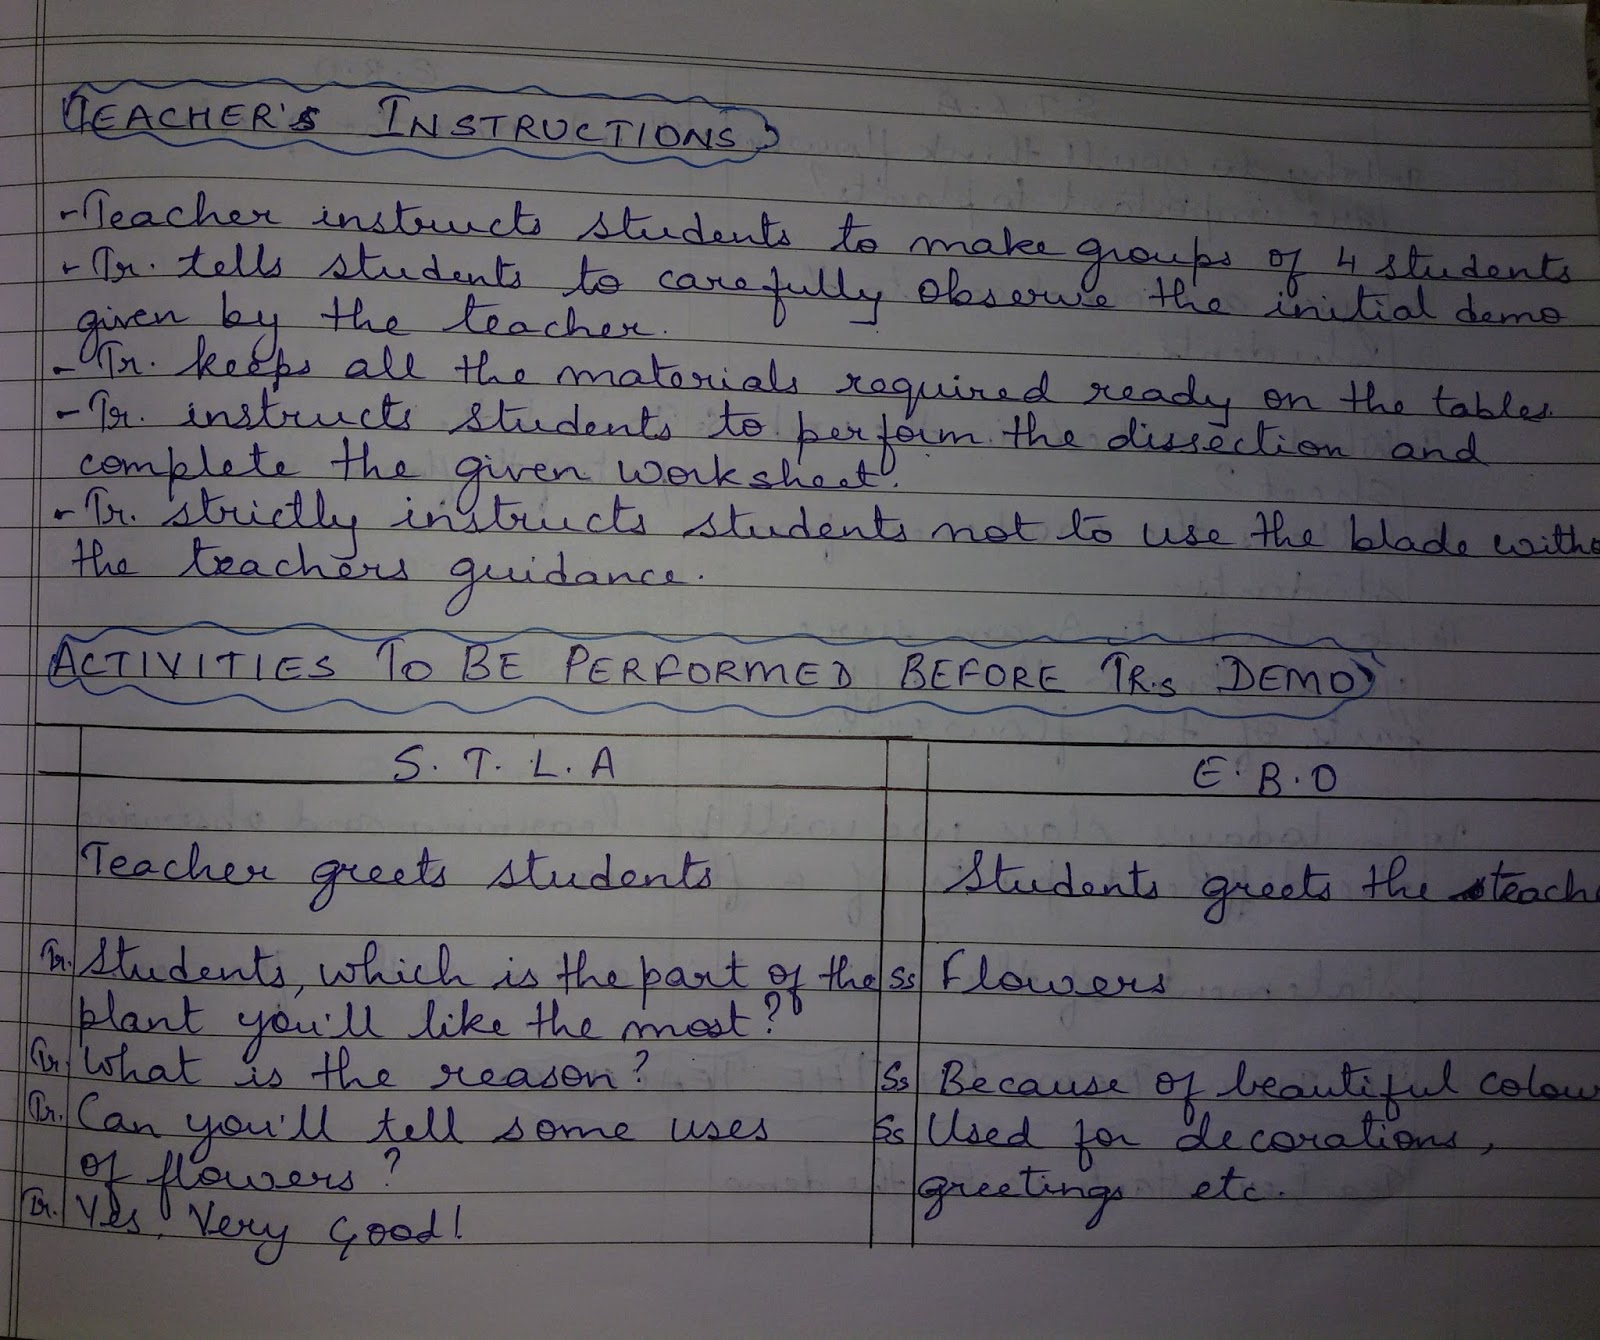 TEACHER'S INSTRUCTIONS
- Teacher instructs students to make groups of 4 students
- Tr. tells students to carefully observe the initial demo
given by the teacher.
- Tr. keeps all the materials required ready on the tables.
- Tr. instructs students to perform the dissection and
complete the given worksheet.
- Tr. strictly instructs students not to use the blade witho
the teachers guidance.
ACTIVITIES TO BE PERFORMED BEFORE TR.s DEMO
S. T. L. A E. B. O
Teacher greets students Students greets the teach
Tr. Students, which is the part of the Ss Flowers
plant you'll like the most?
Tr. What is the reason? Ss Because of beautiful colou
Tr. Can you'll tell some uses Ss Used for decorations,
of flowers? greetings etc.
Tr. Yes, Very Good!